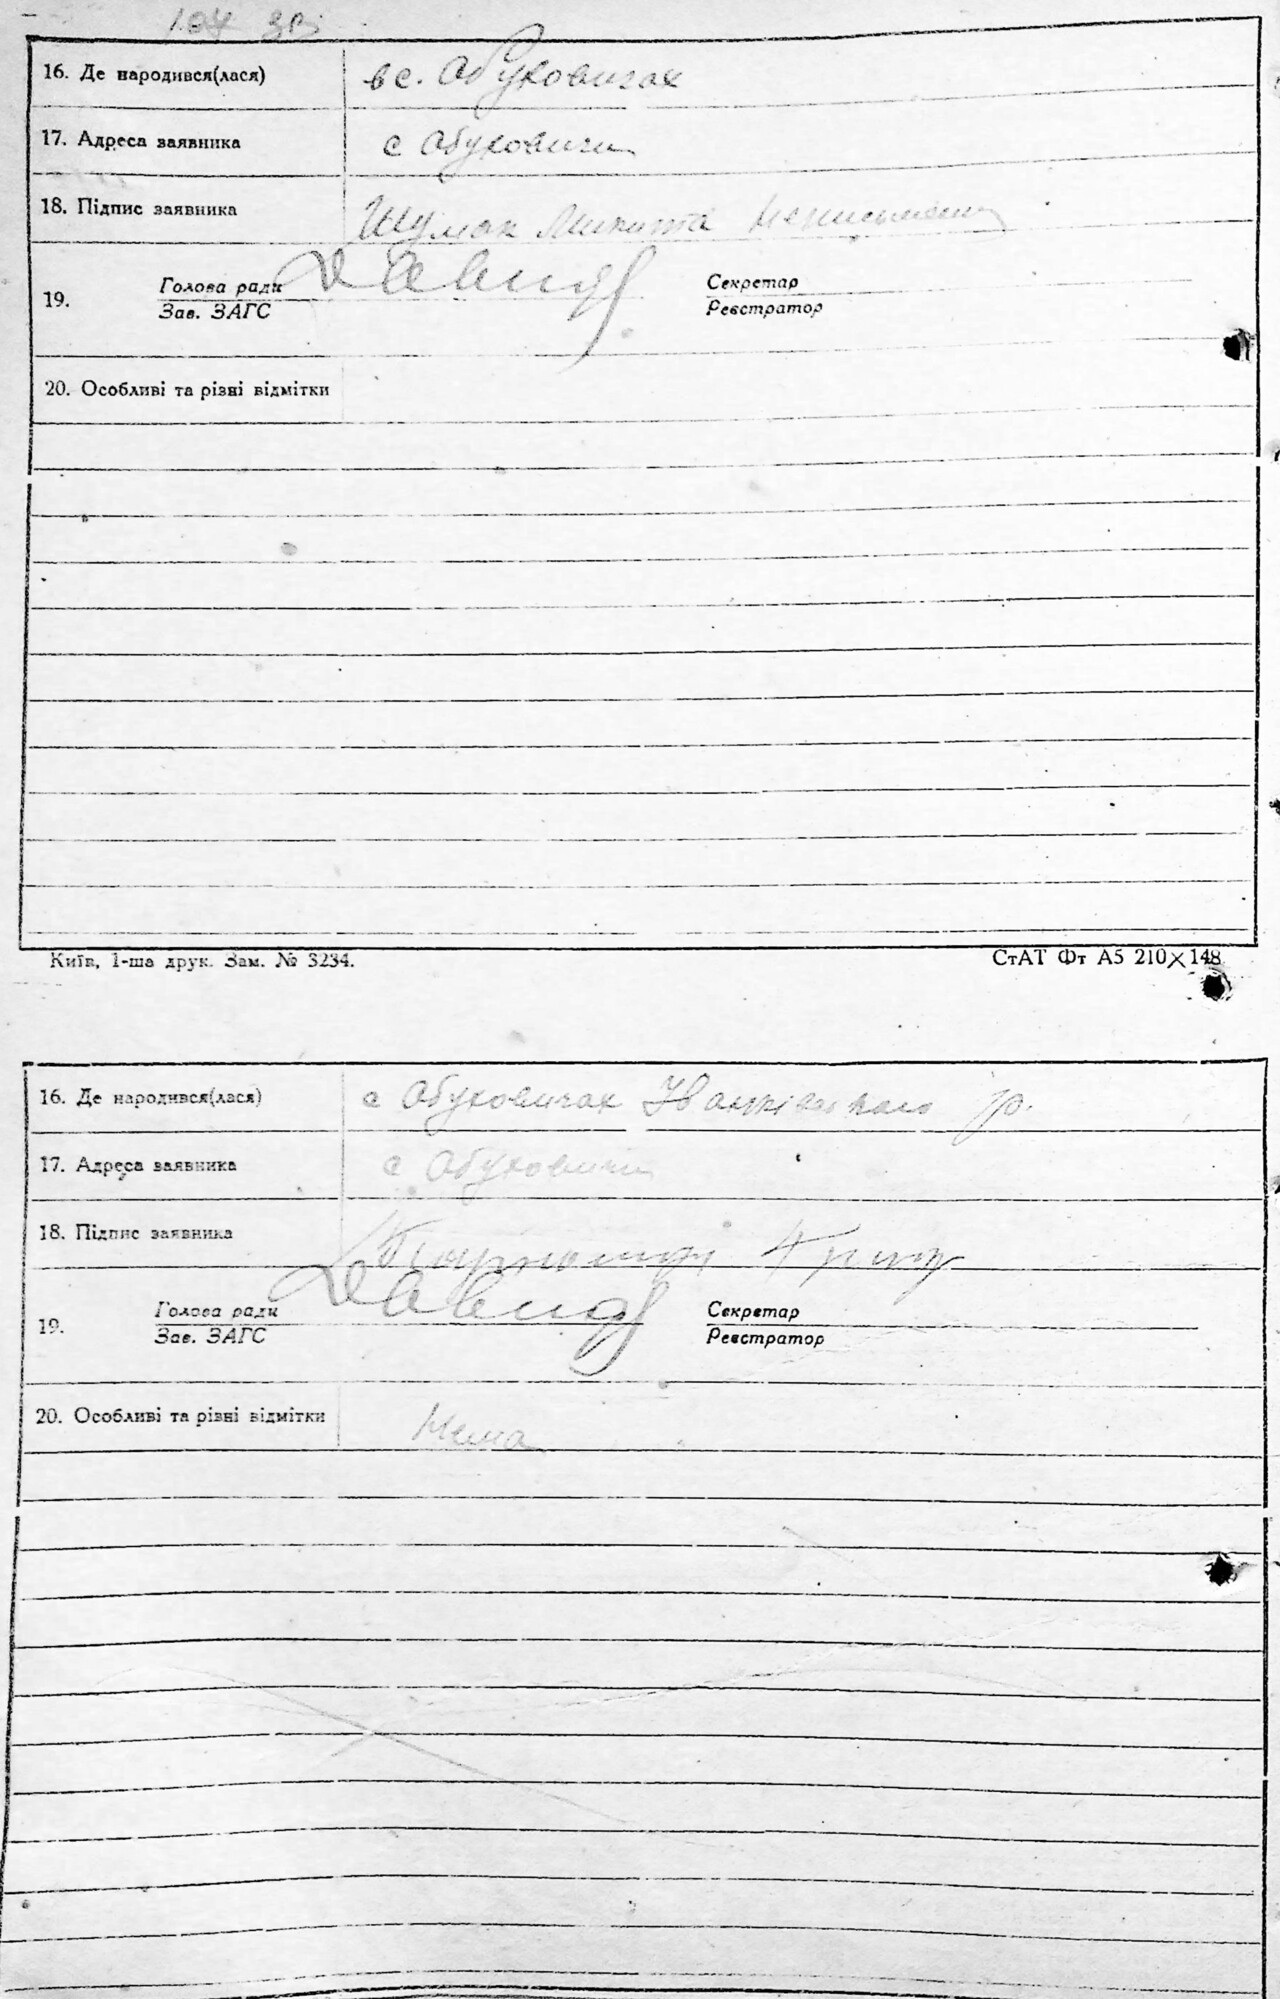 107 зв
16. Де народився(лася) в с. Обуховичах
17. Адреса заявника с Обуховичи
18. Підпис заявника Шуман Микита неписьменн
19. Голова ради Давид Секретар
Зав. ЗАГС Реєстратор
20. Особливі та різні відмітки
Київ, 1-ша друк. Зам. № 3234. СтАТ Фт А5 210×148
16. Де народився(лася) с Обуховичах Іванківського р.
17. Адреса заявника с Обуховичи
18. Підпис заявника
19. Голова ради Давид Секретар
Зав. ЗАГС Реєстратор
20. Особливі та різні відмітки Нема